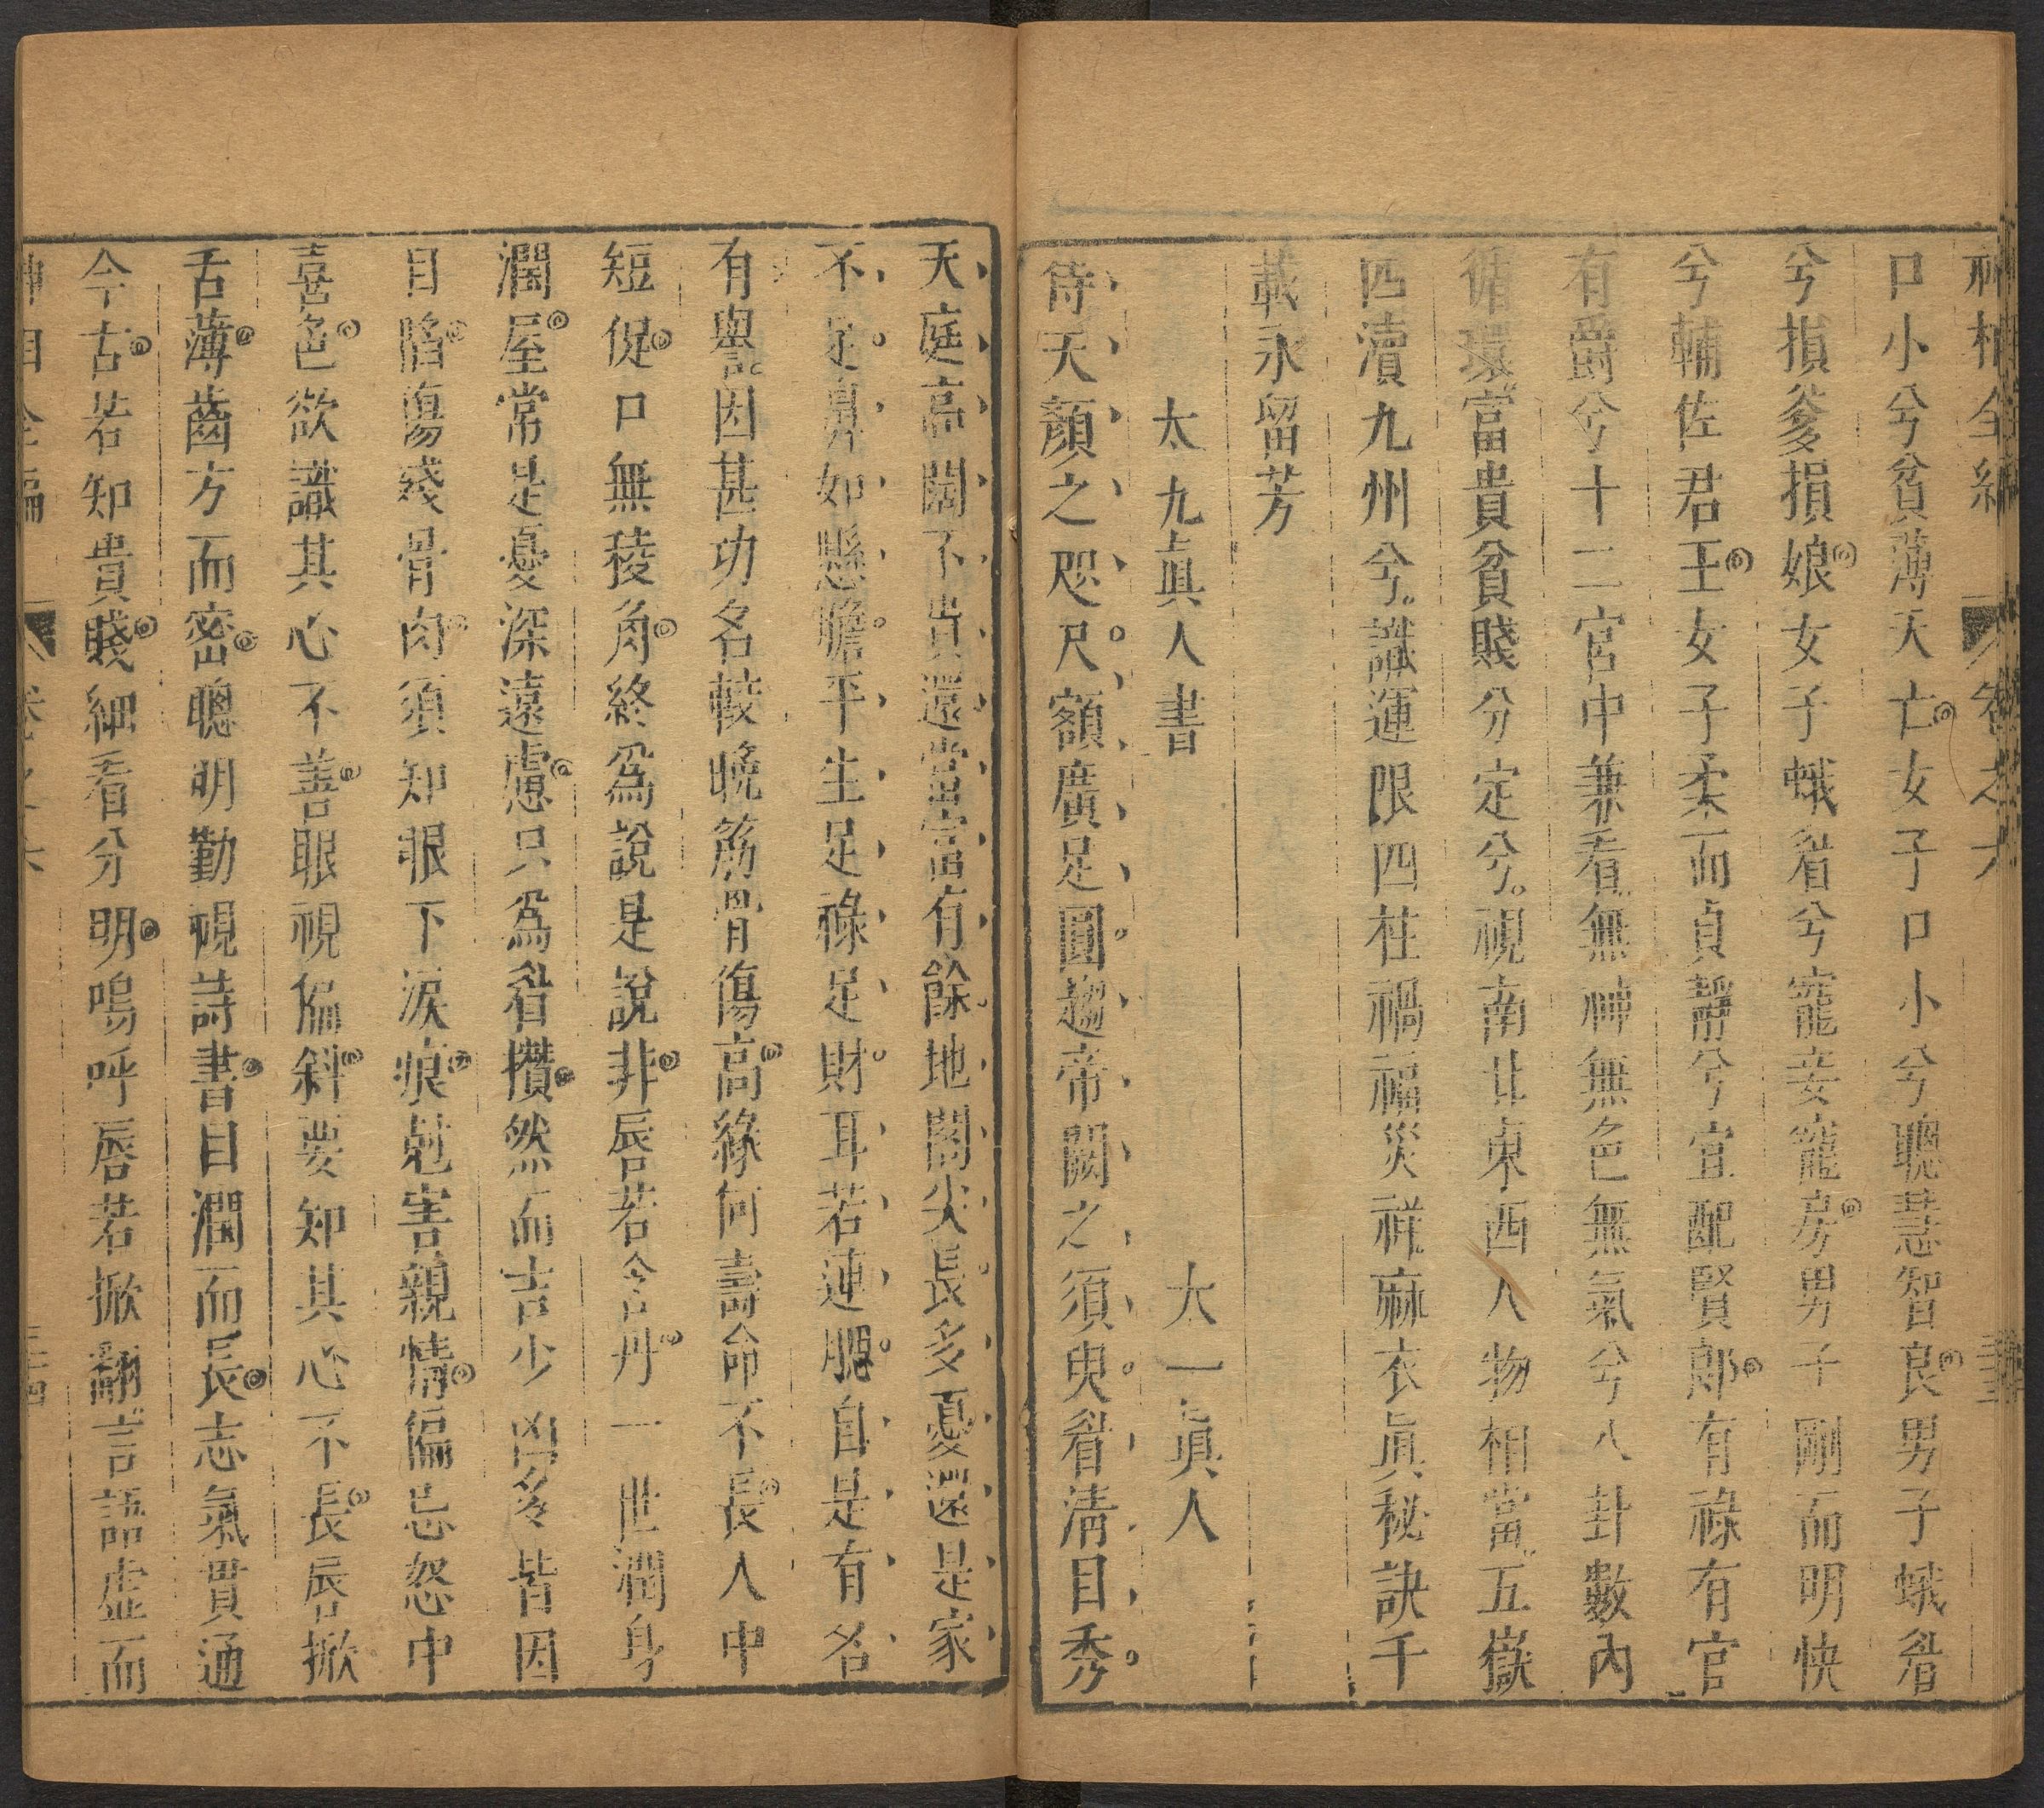 神相全編 卷之六
口小兮貧薄夭亡女子口小兮聰慧智良男子蛾眉
兮損爹損娘女子蛾眉兮寵妾寵房男子剛而明快
兮輔佐君王女子柔而貞靜兮宜配賢郎有祿有官
有爵兮十二宮中兼看無神無色無氣兮八卦數內
循環富貴貧賤分定兮視南北東西人物相當五嶽
四瀆九州兮識運限四柱禍福災祥麻衣眞秘訣千
載永留芳
太九眞人書 太一眞人
侍天顏之咫尺額廣足圓趨帝闕之須臾眉淸目秀
天庭高闊不貴還當富有餘地閣尖長多憂還是家
不足鼻如懸膽平生足祿足財耳若連腮自是有名
有譽因甚功名較晚筋骨傷高緣何壽命不長人中
短促口無稜角終爲說是說非唇若含丹一世潤身
潤屋常是憂深遠慮只爲眉攢然而吉少凶多皆因
目陷傷殘骨肉須知眼下淚痕尅害親情偏忌怒中
喜色欲識其心不善眼視偏斜要知其心不長唇掀
舌薄齒方而密聰明勤視詩書目潤而長志氣貫通
今古若知貴賤細看分明嗚呼唇若掀翻言語虛而
神相全編 卷之六 三十四